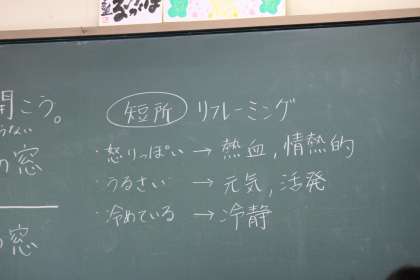 開こう。
らない
の窓
の窓
短所 リフレーミング
・怒りっぽい → 熱血, 情熱的
・うるさい → 元気, 活発
・冷めている → 冷静